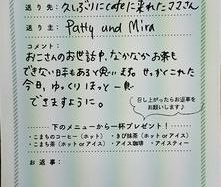 送り先：久しぶりにcafeに来れたママさん
送り主：Patty und Mira
コメント：
おこさんのお世話中、なかなかお茶も
できない日もあると思います。せっかくこれた
今日、ゆっくりほっと一息
できますように。
召し上がったらお返事を
お願いします♪
下のメニューから一杯プレゼント！
・こまちのコーヒー（ホット）・きび抹茶（ホット or アイス）
・こまち茶（ホット or アイス）・アイス珈琲・アイスティー
お返事：